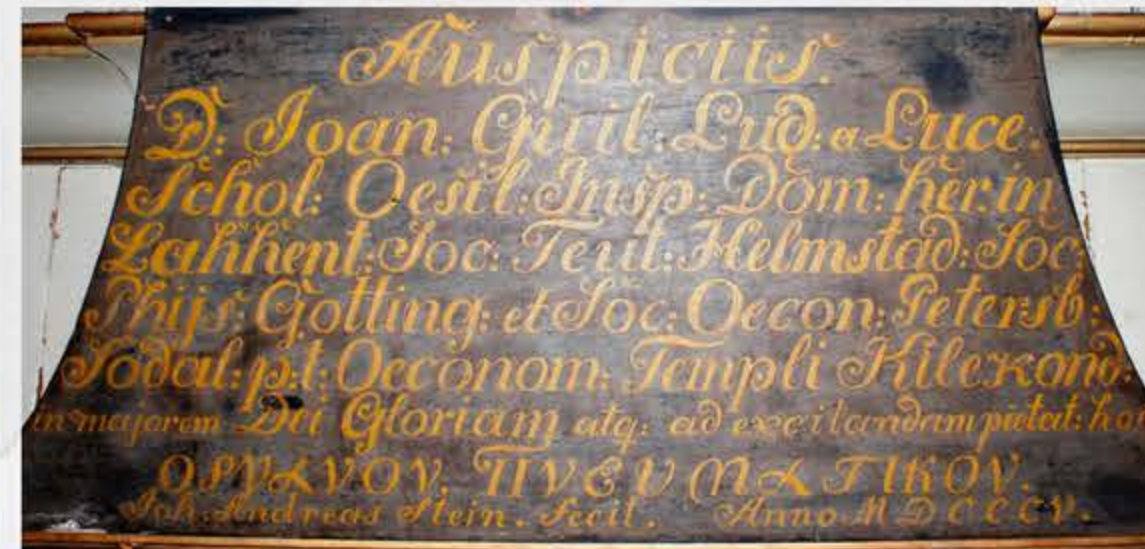 Auspiciis.
D: Joan: Guil: Lud: a Luce.
Schol: Oesil: Insp: Dom: her: in
Lahhent: Soc: Teut: Helmstad: Soc:
Phijs: Gotting: et Soc: Oecon: Petersb:
Sodal: p:t: Oeconom: Templi Kilekond.
in majorem Dei Gloriam atq: ad excitandam pietat:
ΟΡΓΑΝΟΝ. ΠΝΕΥΜΑΤΙΚΟΝ.
Joh: Andreas Stein. Fecit. Anno MDCCCV.